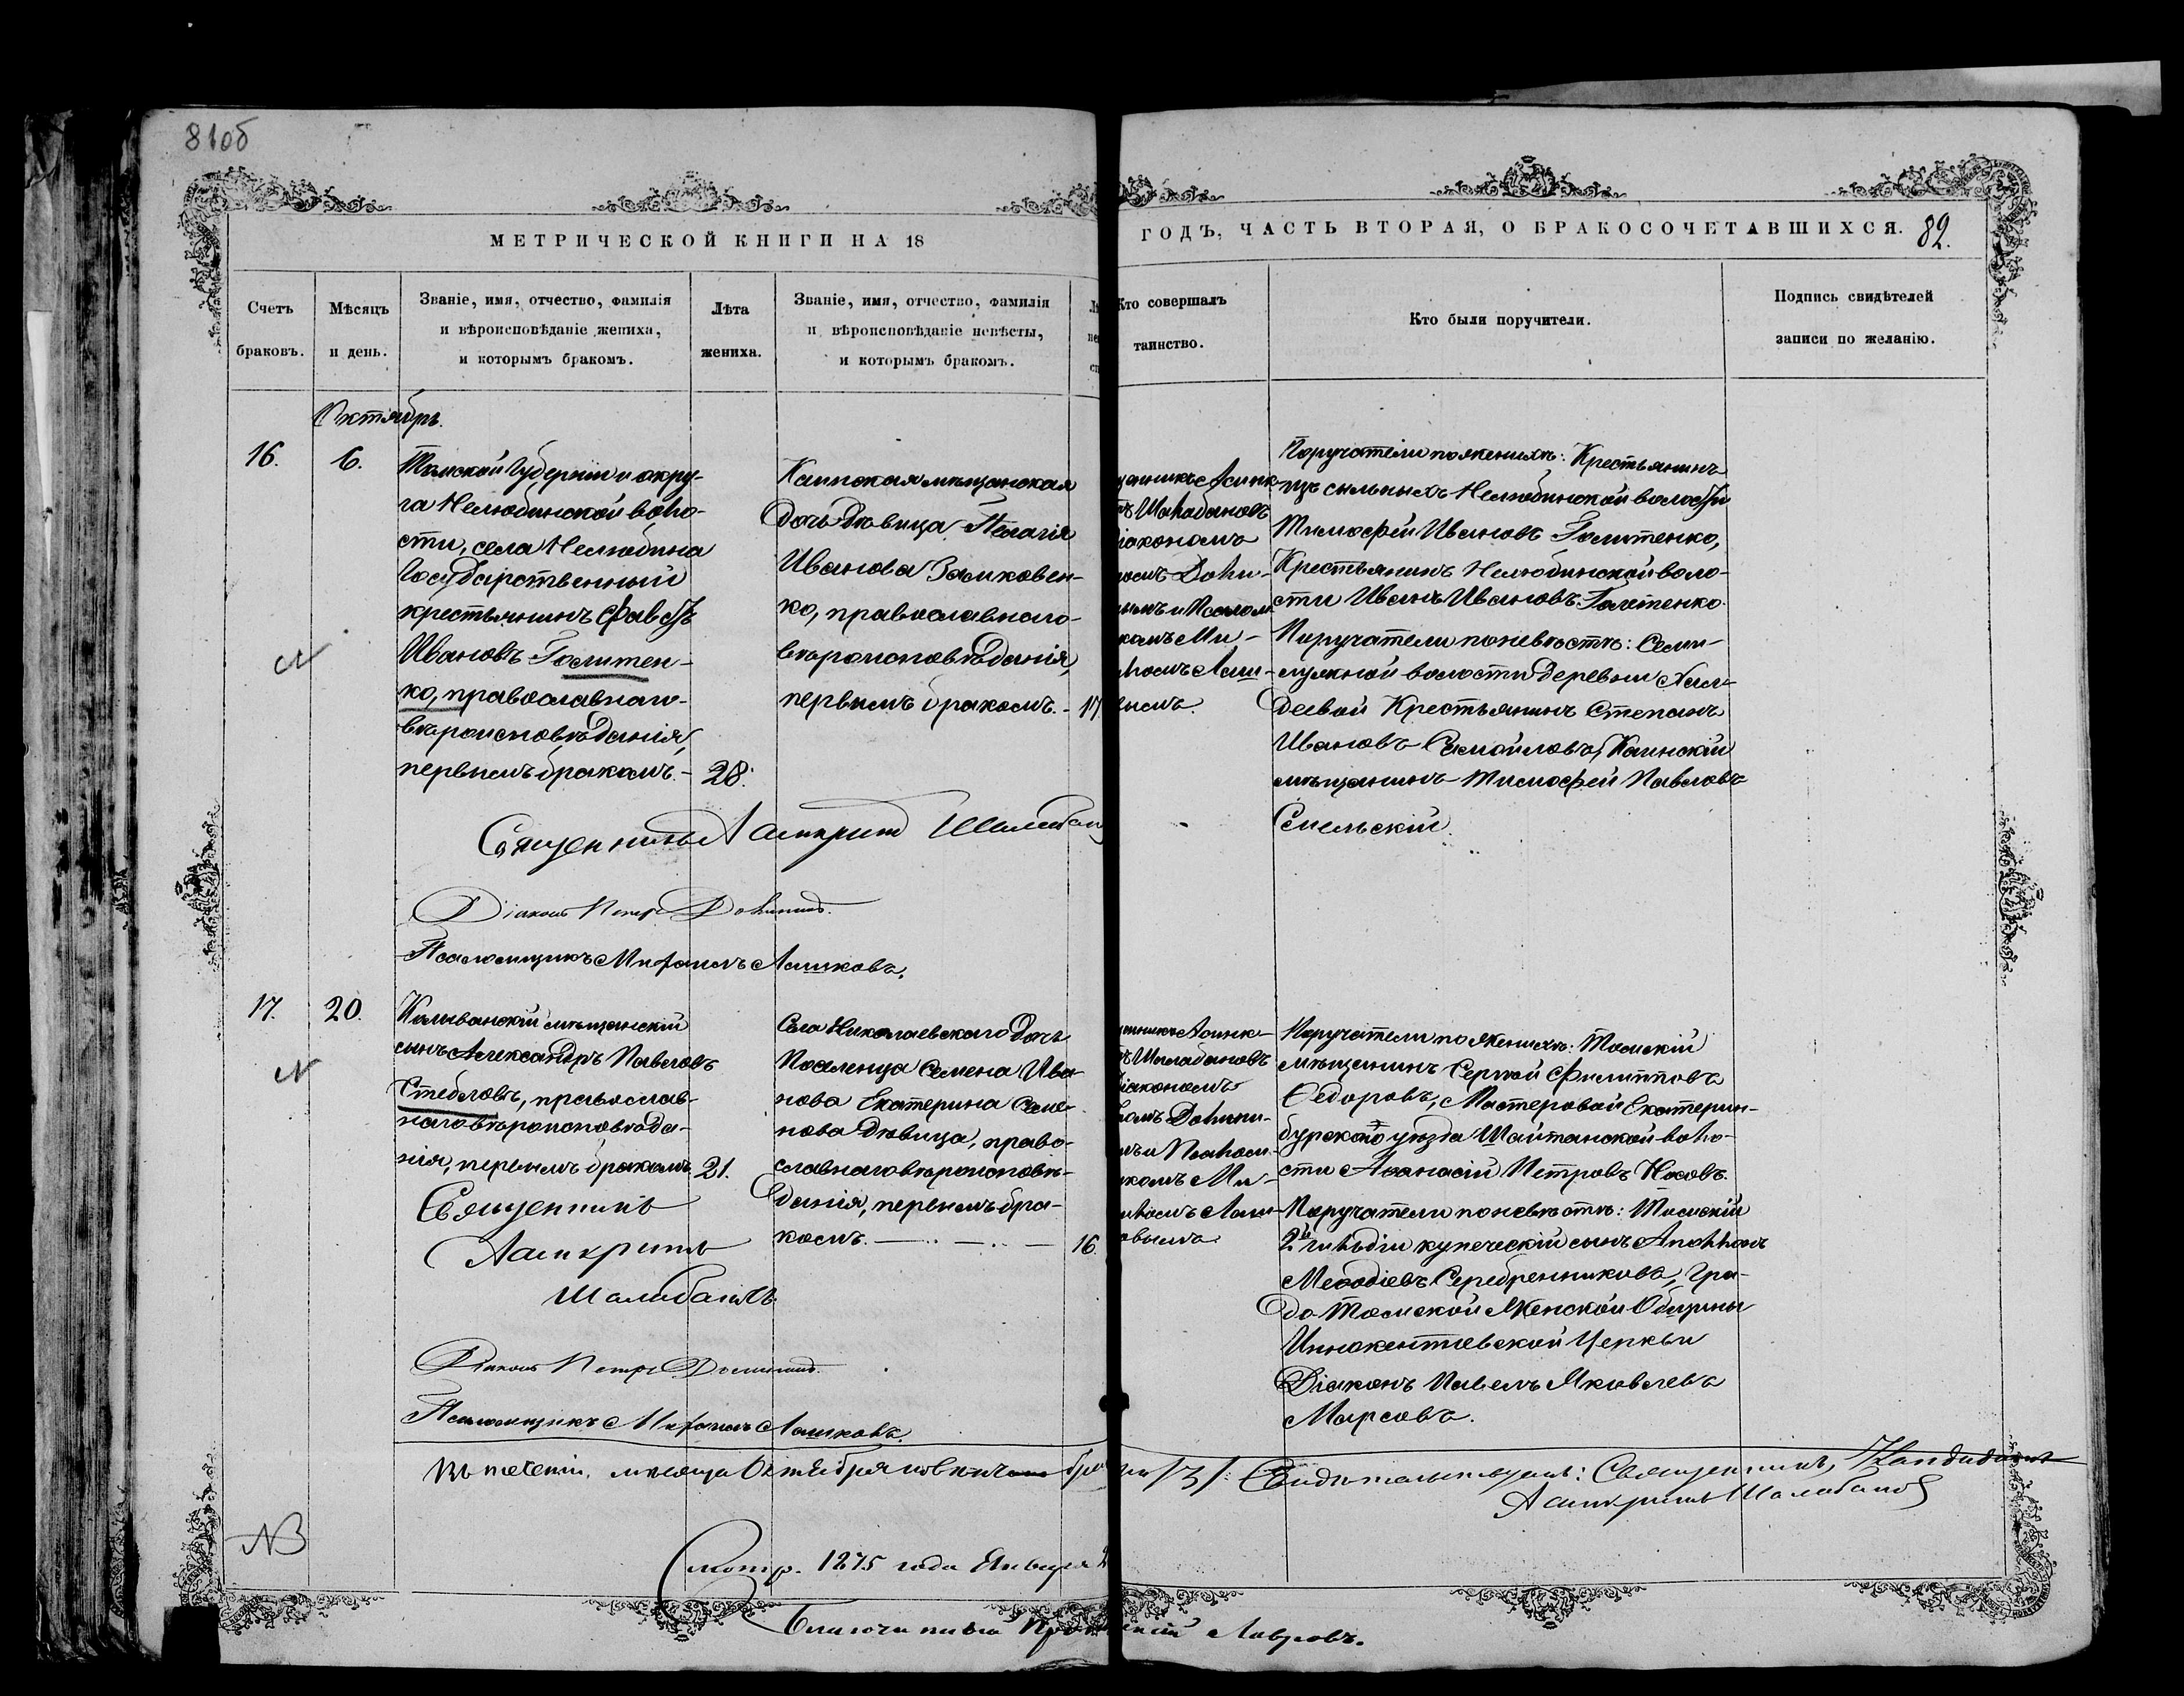 81об
МЕТРИЧЕСКОЙ КНИГИ НА 18
ГОДЪ, ЧАСТЬ ВТОРАЯ, О БРАКОСОЧЕТАВШИХСЯ.
82.
Счетъ
браковъ.
Мѣсяцъ
и день.
Званіе, имя, отчество, фамилія
и вѣроисповѣданіе жениха,
и которымъ бракомъ.
Лѣта
жениха.
Званіе, имя, отчество, фамилія
и вѣроисповѣданіе невѣсты,
и которымъ бракомъ.
Кто совершалъ
таинство.
Кто были поручители.
Подпись свидѣтелей
записи по желанію.
Октябрь.
16.
6.
Томской Губерніи и окру-
га Нелюбинской воло-
сти, села Нелюбина
Государственный
крестьянинъ Фавстъ
Ивановъ Голитен-
ко, православнаго
вѣроисповѣданія,
первымъ бракомъ. - 28.
Каинская мѣщанская
дочь дѣвица Пелагія
Иванова Заиковен-
ко, православнаго
вѣроисповѣданія,
первымъ бракомъ. - 17.
щенникъ Асинк-
тъ Шалабановъ
діакономъ
ромъ Доли-
нымъ и Псалом-
комъ Ми-
иломъ Лаш-
вымъ.
Поручатели по женихѣ: Крестьянинъ
изъ сыльныхъ Нелюбинской волости
Тимофей Ивановъ Голитенко,
Крестьянинъ Нелюбинской воло-
сти Иванъ Ивановъ Голитенко.
Поручатели по невѣстѣ: Семи-
лужной волости деревни Хал-
деевой Крестьянинъ Степанъ
Ивановъ Самойловъ, Каинскій
мѣщанинъ Тимофей Павловъ
Смельскій.
Священникъ Асинкритъ Шалабанов
Діаконъ Петръ Долининъ.
Псаломщикъ Михаилъ Лашковъ.
17.
20.
Колыванскій мѣщанскій
сынъ Александръ Павловъ
Стебловъ, православ-
наго вѣроисповѣда-
нія, первымъ бракомъ. 21.
Села Николаевскаго дочь
Поселенца Семена Ива-
нова Екатерина Семе-
нова дѣвица, право-
славнаго вѣроисповѣ-
данія, первымъ бра-
комъ. 16.
щенникъ Асинк-
тъ Шалабановъ
діакономъ
ромъ Долини-
мъ и Псалом-
комъ Ми-
иломъ Лаш-
овымъ
Поручатели по женихѣ: Томскій
мѣщанинъ Сергей Филипповъ
Ѳедоровъ, Мастеровой Екатерин-
бургскаго уѣзда Шайтанской воло-
сти Аѳанасій Петровъ Носовъ.
Поручатели по невѣстѣ: Томскій
2й гильдіи купеческій сынъ Аполлонъ
Меѳодіевъ Серебренниковъ, Гра-
до-Томской Женской Общины
Иннокентіевской Церкви
Діаконъ Павелъ Яковлевъ
Марсовъ.
Священникъ
Асинкритъ
Шалабановъ
Діаконъ Петръ Долининъ.
Псаломщикъ Михаилъ Лашковъ.
Въ теченіи мѣсяца Октября
Свидѣтельствуемъ: Священникъ,
Асинкритъ Шалабанов
NB
Смотр. 1875 года Января 2
Благочинный Лавровъ.